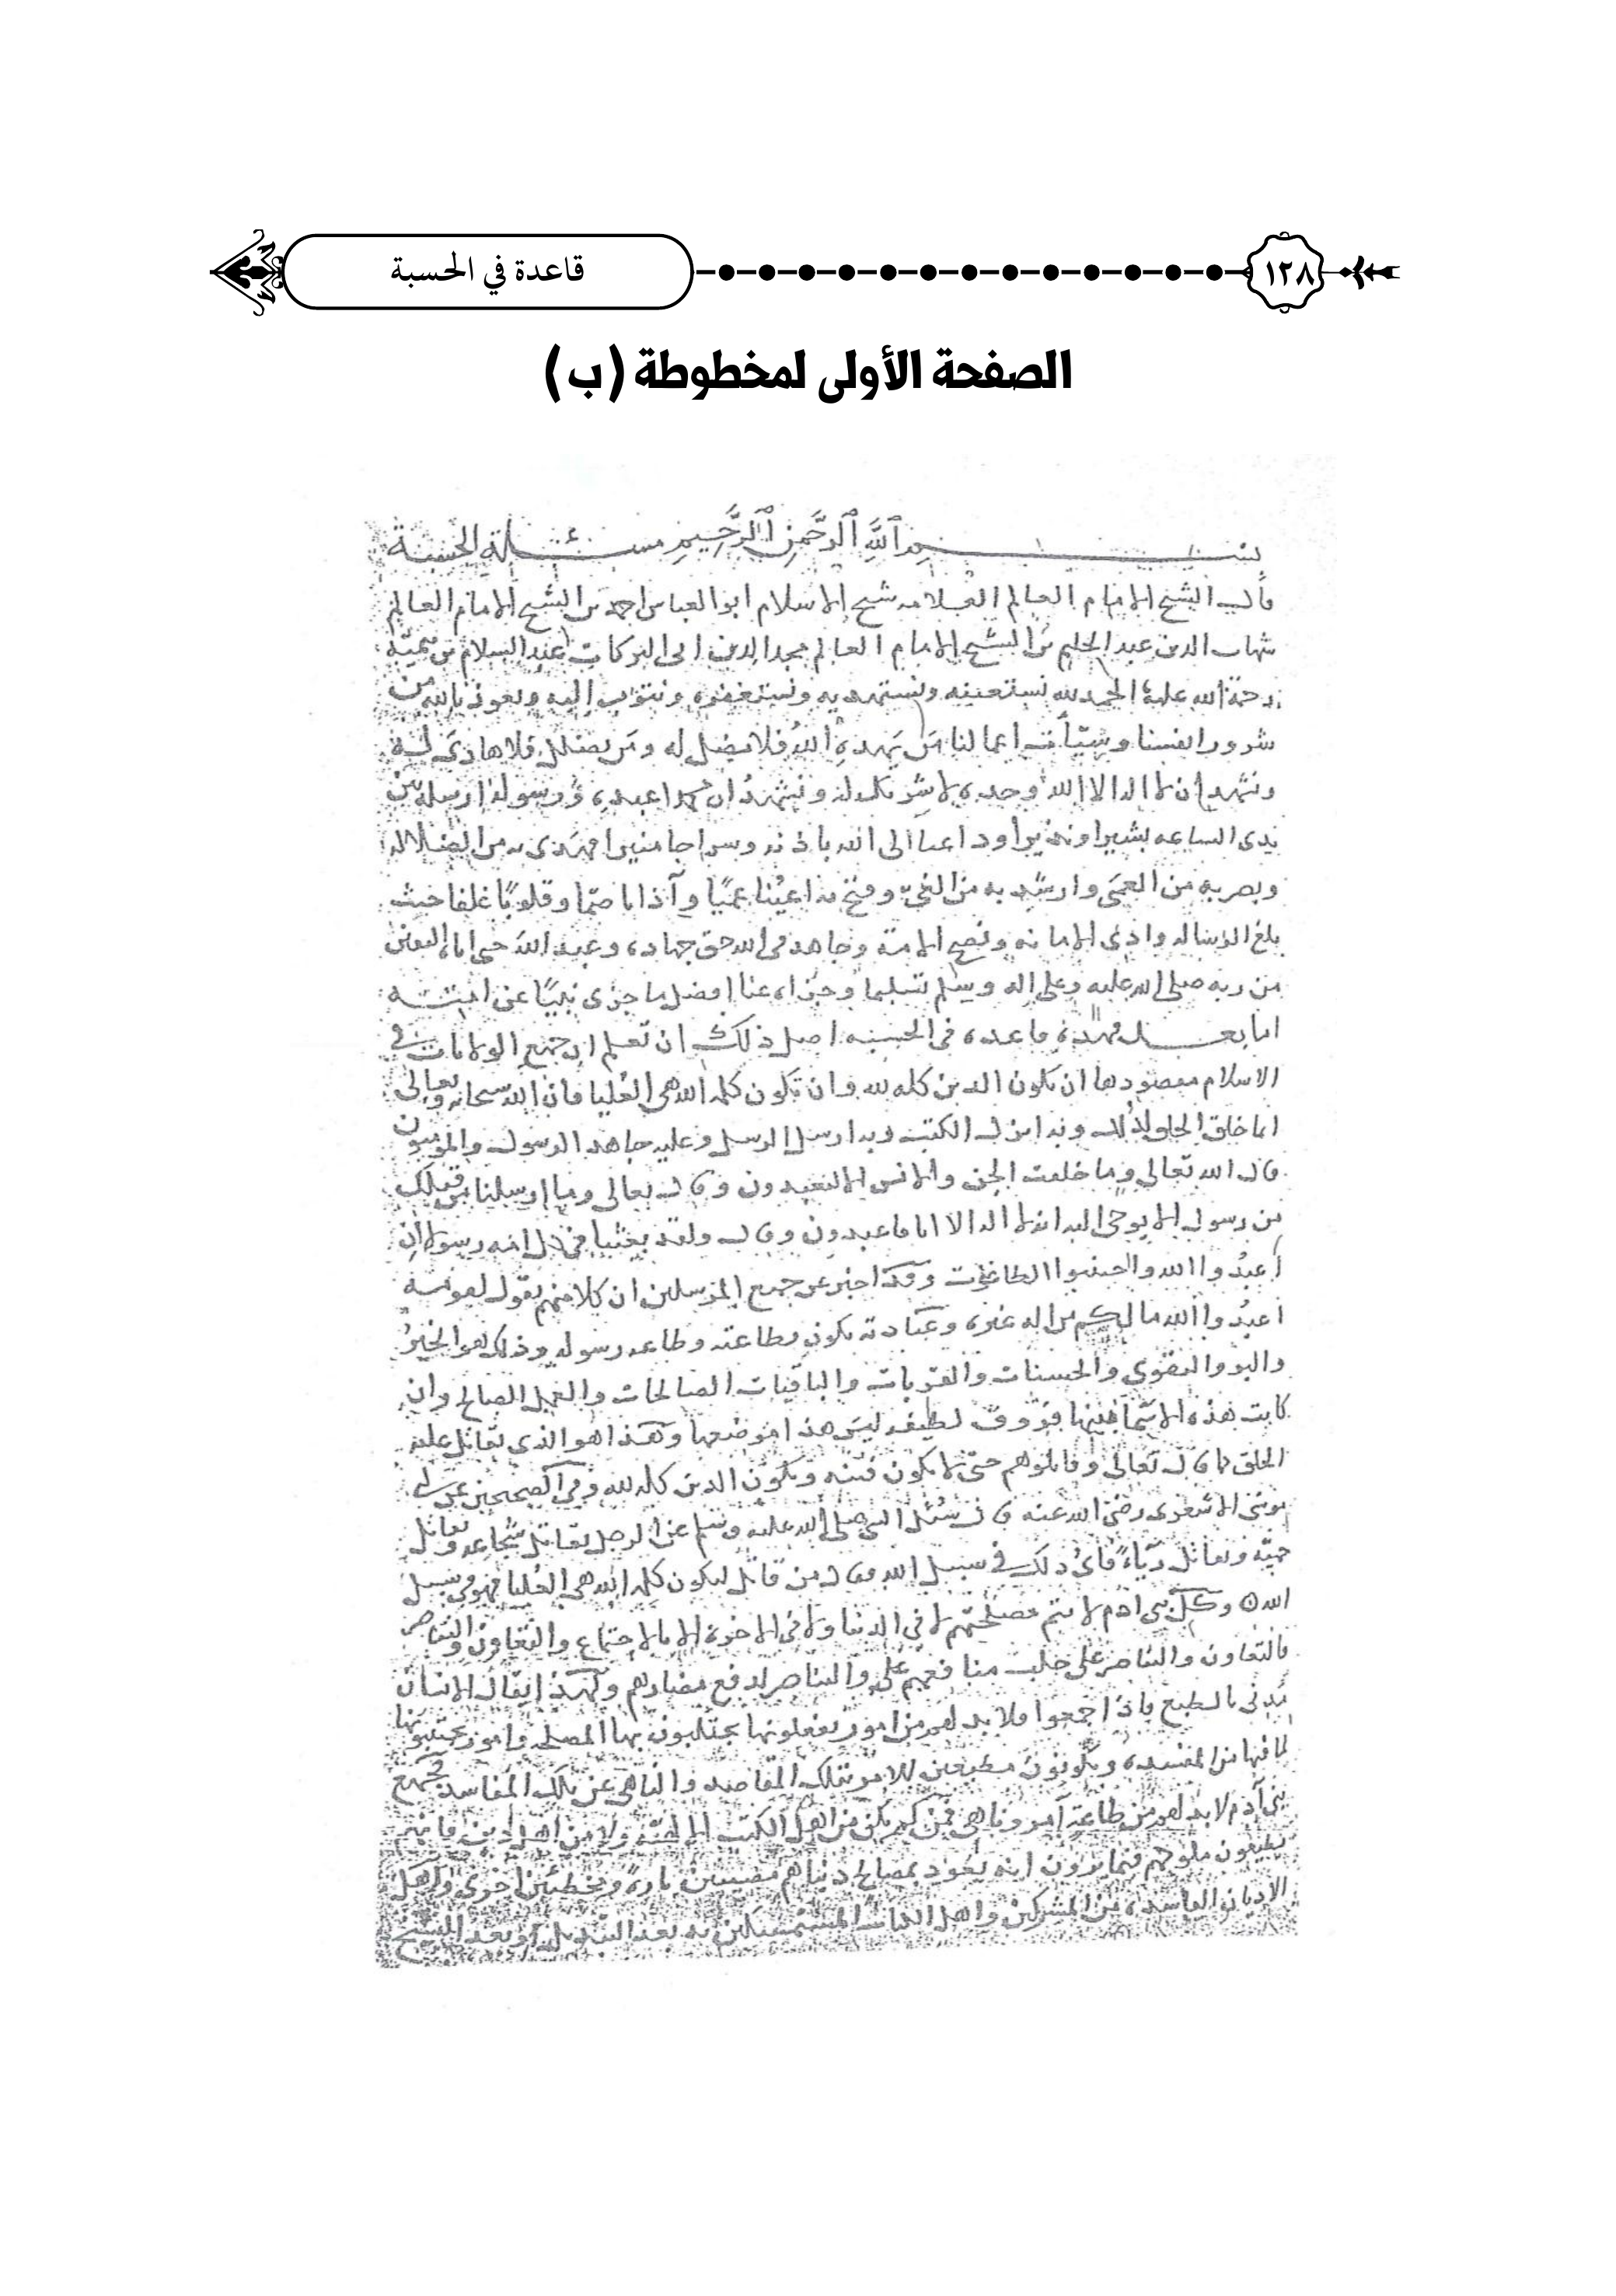 ١٢٨
قاعدة في الحسبة
الصفحة الأولى لمخطوطة (ب)
بسم ٱللَّهِ ٱلرَّحْمَنِ ٱلرَّحِيمِ مسئلة الحسبة
قال الشيخ الامام العالم العلامه شيخ الاسلام ابو العباس احمد بن الشيخ الامام العالم
شهاب الدين عبد الحليم بن الشيخ الامام العالم مجد الدين ابى البركات عبد السلام بن تيميّة
رحمة الله عليه الحمد لله نستعينه ونستهديه ونستغفره ونتوب إليه ونعوذ بالله من
شرور انفسنا وسيّأت اعمالنا مَن يَهده اللهُ فلا مضل له ومَن يضلل فلا هادىَ له
ونشهد ان لا اله الا الله وحده لا شريك له ونشهدُ ان محمدا عبده ورسوله ارسله بين
يدى الساعه بشيرا ونذيرا وداعيا الى الله باذنه وسراجا منيرا فهدى به من الضلاله
وبصر به من العمَى وارشد به من الغىّ وفتح به اعيُنا عميًا وآذانا صمّا وقلوبًا غلفا حيث
بلغ الرساله وادى الامانه ونصح الامة وجاهد فى الله حق جهاده وعبد الله حتى اتاه اليقين
من ربه صلى الله عليه وعلى اله وسلم تسليما وجزاه عنا افضل ما جزى نبيًا عن امته
اما بعد فهذه قاعده فى الحسبه اصل ذلك ان تعلم ان جميع الولايات فى
الاسلام مقصودها ان يكون الدين كله لله وان تكون كلمه الله هى العُليا فان الله سبحانه وتعالى
انما خلق الخلق لذلك وبه انزل الكتب وبه ارسل الرسل وعليه جاهد الرسول والمومنون
قال الله تعالى وما خلقت الجن والانس الا ليعبدون وقال تعالى وما ارسلنا من قبلك
من رسول الا يوحى اليه انه لا اله الا انا فاعبدون وقال ولقد بعثنا فى كل امه رسولا ان
اعبدُوا الله واجتنبوا الطاغوت وقد اخبر عن جميع المرسلين ان كلا منهم يقول لقومه
اعبدُوا الله ما لكم من اله غيره وعبادته تكون بطاعته وطاعه رسوله وذلك هو الخيرُ
والبر والتقوى والحسنات والقربات والباقيات الصالحات والعمل الصالح وان
كانت هذه الاسما بينها فروق لطيفه ليس هذا موضعها وهذا هو الذى يقاتل عليه
الخلق كما قال تعالى وقاتلوهم حتى لا يكون فتنه ويكون الدين كله لله وفى الصحيحين عن ابى
موسى الاشعرى رضى الله عنه قال سُئل النبى صلى الله عليه وسلم عن الرجل يقاتل شجاعه ويقاتل
حميّه ويقاتل ريَاءً فاىُ ذلك فى سبيل الله فقال من قاتل لتكون كلمه الله هى العُليا فهو فى سبيل
الله وكل بنى ادم لا يتم مصلحتهم لا فى الدنيا ولا فى الاخرة الا بالاجتماع والتعاون والتناصر
فالتعاون والتناصر على جلب منافعهم والتناصر لدفع مضارهم ولهذا يقال الانسان
مدنى بالطبع فاذا اجمعوا فلا بد لهم من امور يفعلونها يجتلبون بها المصلحه وامور يجتنبونها
لما فيها من المفسده ويكونون مطيعين للامر بتلك المقاصد والناهى عن تلك المفاسد فجميع
بنى آدم لا بد لهم من طاعةِ آمر وناهى فمن لم يكن من اهل الكتب الالهيّة ولا من اهل دين فانهم
يطيعون ملوكهم فيما يرون انه يعود بمصالح دنياهم مصيبين تارةً ومخطئين اخرى واهل
الاديان الفاسده من المشركين واهل الكتاب المستمسكين به بعد التبديل او بعد النسخ